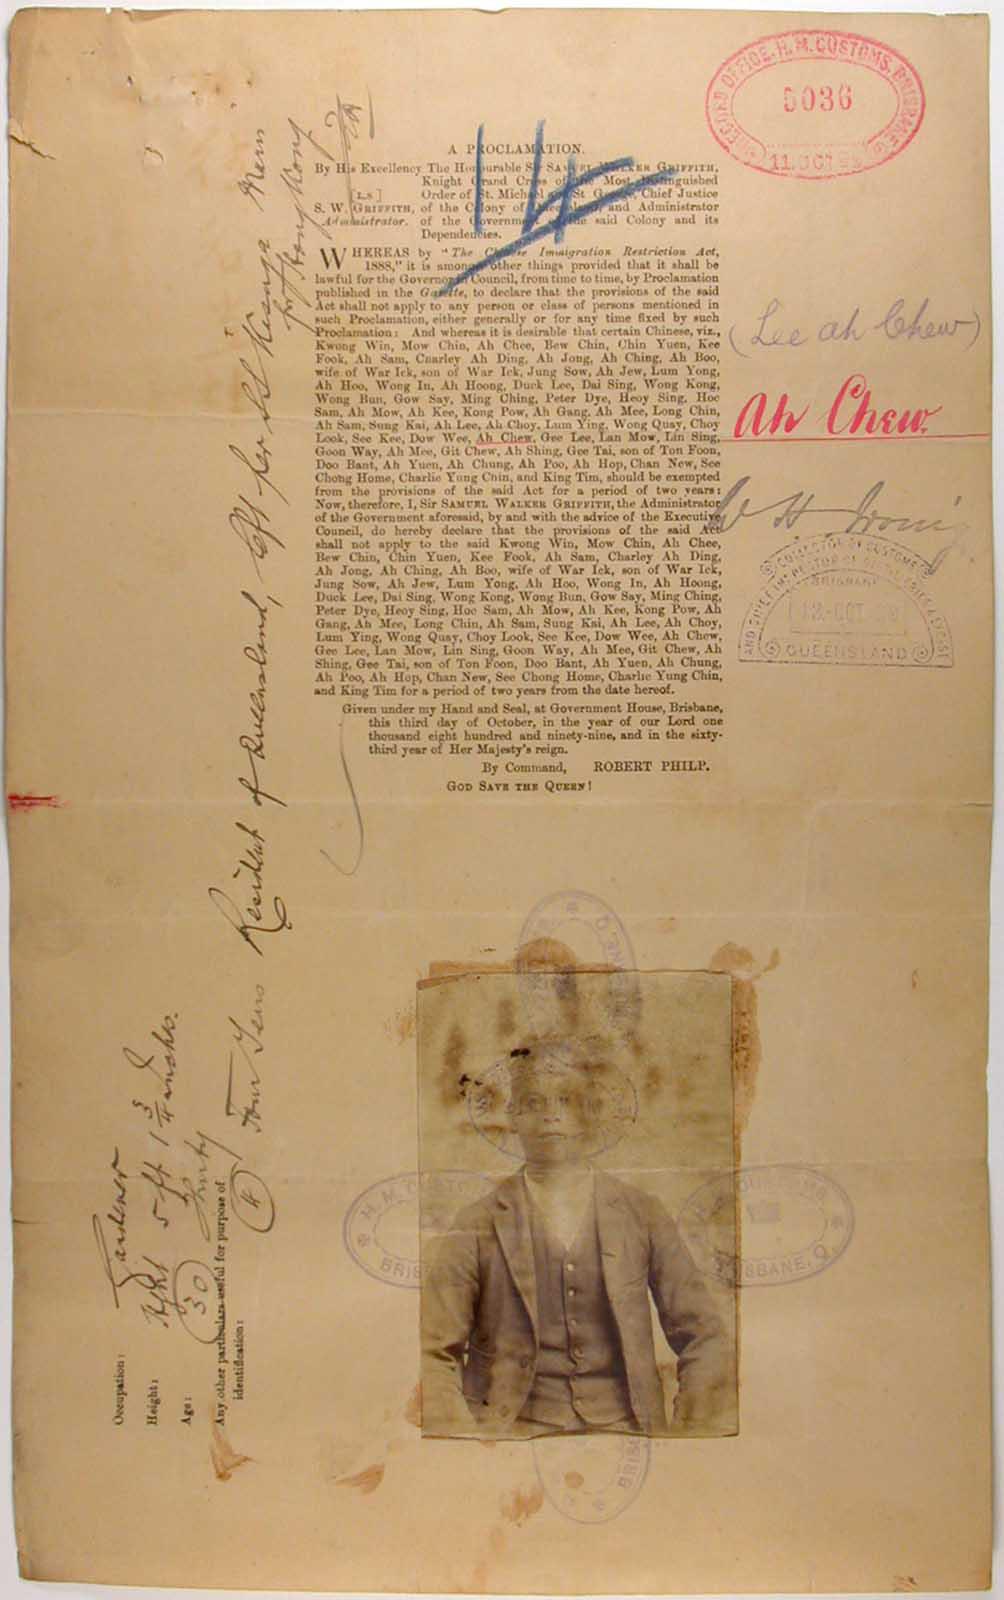 RECORD OFFICE. H. M. CUSTOMS, BRISBANE
5036
11. OCT 99
14
A PROCLAMATION.
By His Excellency The Honourable Sir SAMUEL WALKER GRIFFITH,
Knight Grand Cross of the Most Distinguished
[L.S] Order of St. Michael and St George, Chief Justice
S. W. GRIFFITH, of the Colony of Queensland, and Administrator
Administrator. of the Government of the said Colony and its
Dependencies.
WHEREAS by "The Chinese Immigration Restriction Act,
1888," it is amongst other things provided that it shall be
lawful for the Governor in Council, from time to time, by Proclamation
published in the Gazette, to declare that the provisions of the said
Act shall not apply to any person or class of persons mentioned in
such Proclamation, either generally or for any time fixed by such
Proclamation: And whereas it is desirable that certain Chinese, viz.,
Kwong Win, Mow Chin, Ah Chee, Bew Chin, Chin Yuen, Kee
Fook, Ah Sam, Charley Ah Ding, Ah Jong, Ah Ching, Ah Boo,
wife of War Ick, son of War Ick, Jung Sow, Ah Jew, Lum Yong,
Ah Hoo, Wong In, Ah Hoong, Duck Lee, Dai Sing, Wong Kong,
Wong Bun, Gow Say, Ming Ching, Peter Dye, Heoy Sing, Hoc
Sam, Ah Mow, Ah Kee, Kong Pow, Ah Gang, Ah Mee, Long Chin,
Ah Sam, Sung Kai, Ah Lee, Ah Choy, Lum Ying, Wong Quay, Choy
Look, See Kee, Dow Wee, Ah Chew, Gee Lee, Lan Mow, Lin Sing,
Goon Way, Ah Mee, Git Chew, Ah Shing, Gee Tai, son of Ton Foon,
Doo Bant, Ah Yuen, Ah Chung, Ah Poo, Ah Hop, Chan New, See
Chong Home, Charlie Yung Chin, and King Tim, should be exempted
from the provisions of the said Act for a period of two years:
Now, therefore, I, Sir SAMUEL WALKER GRIFFITH, the Administrator
of the Government aforesaid, by and with the advice of the Executive
Council, do hereby declare that the provisions of the said Act
shall not apply to the said Kwong Win, Mow Chin, Ah Chee,
Bew Chin, Chin Yuen, Kee Fook, Ah Sam, Charley Ah Ding,
Ah Jong, Ah Ching, Ah Boo, wife of War Ick, son of War Ick,
Jung Sow, Ah Jew, Lum Yong, Ah Hoo, Wong In, Ah Hoong,
Duck Lee, Dai Sing, Wong Kong, Wong Bun, Gow Say, Ming Ching,
Peter Dye, Heoy Sing, Hoc Sam, Ah Mow, Ah Kee, Kong Pow, Ah
Gang, Ah Mee, Long Chin, Ah Sam, Sung Kai, Ah Lee, Ah Choy,
Lum Ying, Wong Quay, Choy Look, See Kee, Dow Wee, Ah Chew,
Gee Lee, Lan Mow, Lin Sing, Goon Way, Ah Mee, Git Chew, Ah
Shing, Gee Tai, son of Ton Foon, Doo Bant, Ah Yuen, Ah Chung,
Ah Poo, Ah Hop, Chan New, See Chong Home, Charlie Yung Chin,
and King Tim for a period of two years from the date hereof.
Given under my Hand and Seal, at Government House, Brisbane,
this third day of October, in the year of our Lord one
thousand eight hundred and ninety-nine, and in the sixty-
third year of Her Majesty's reign.
By Command, ROBERT PHILP.
GOD SAVE THE QUEEN!
(Lee Ah Chew)
Ah Chew.
W H Irving
COLLECTOR OF CUSTOMS
BRISBANE
12-OCT
QUEENSLAND
Occupation: Gardener
Height: Hght 5 ft 1 3/4 inches.
Age: (30) Thirty
Any other particulars useful for purpose of
identification: (4) Four Years Resident of Queensland, left per
for Hong Kong
H. M. CUSTOMS
BRISBANE. Q.